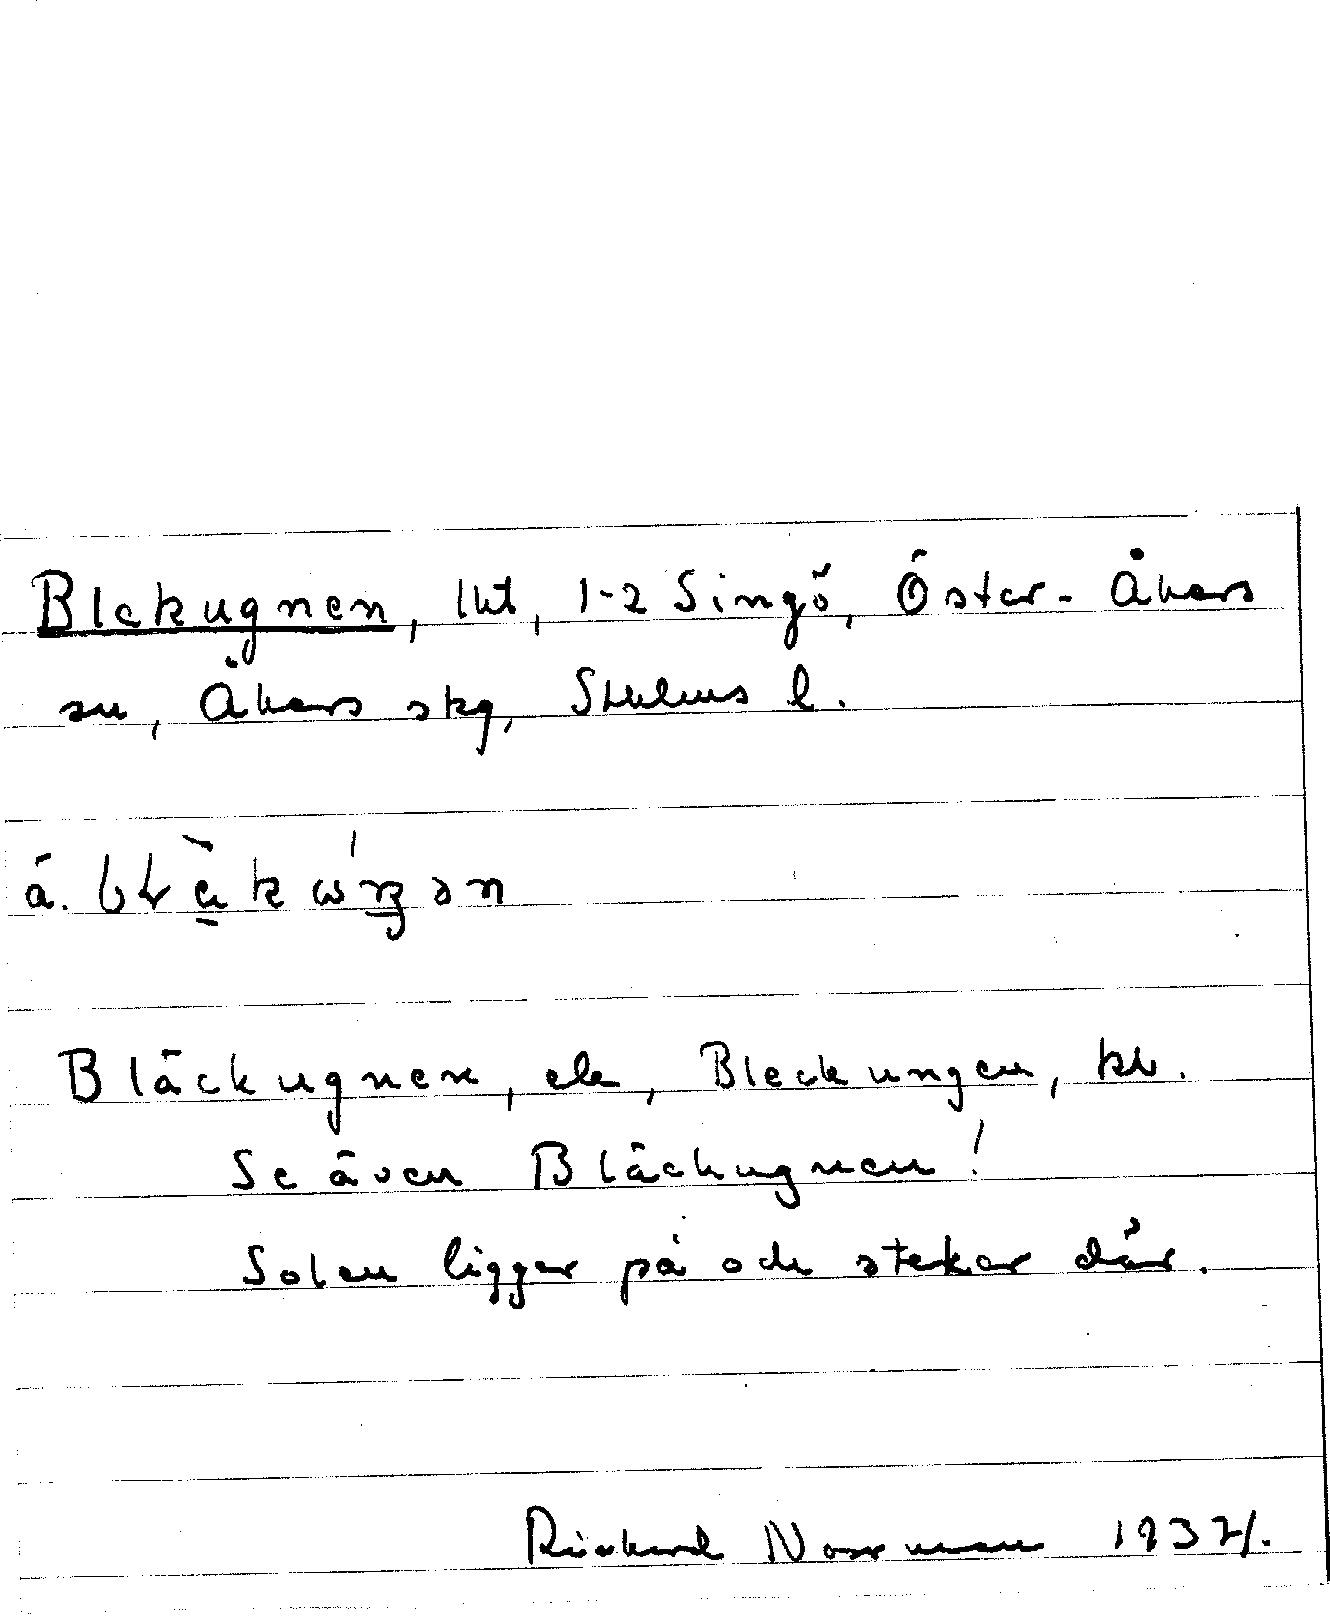 Blekugnen, lkt, 1-2 Singö, Öster-Åkers
sn, Åkers skg, Sthlms l.
å.
Bläckugnen, el, Bleckungen, kb.
Se även Bläckugnen!
Solen ligger på och steker där.
Rickard Norrman 1937/.